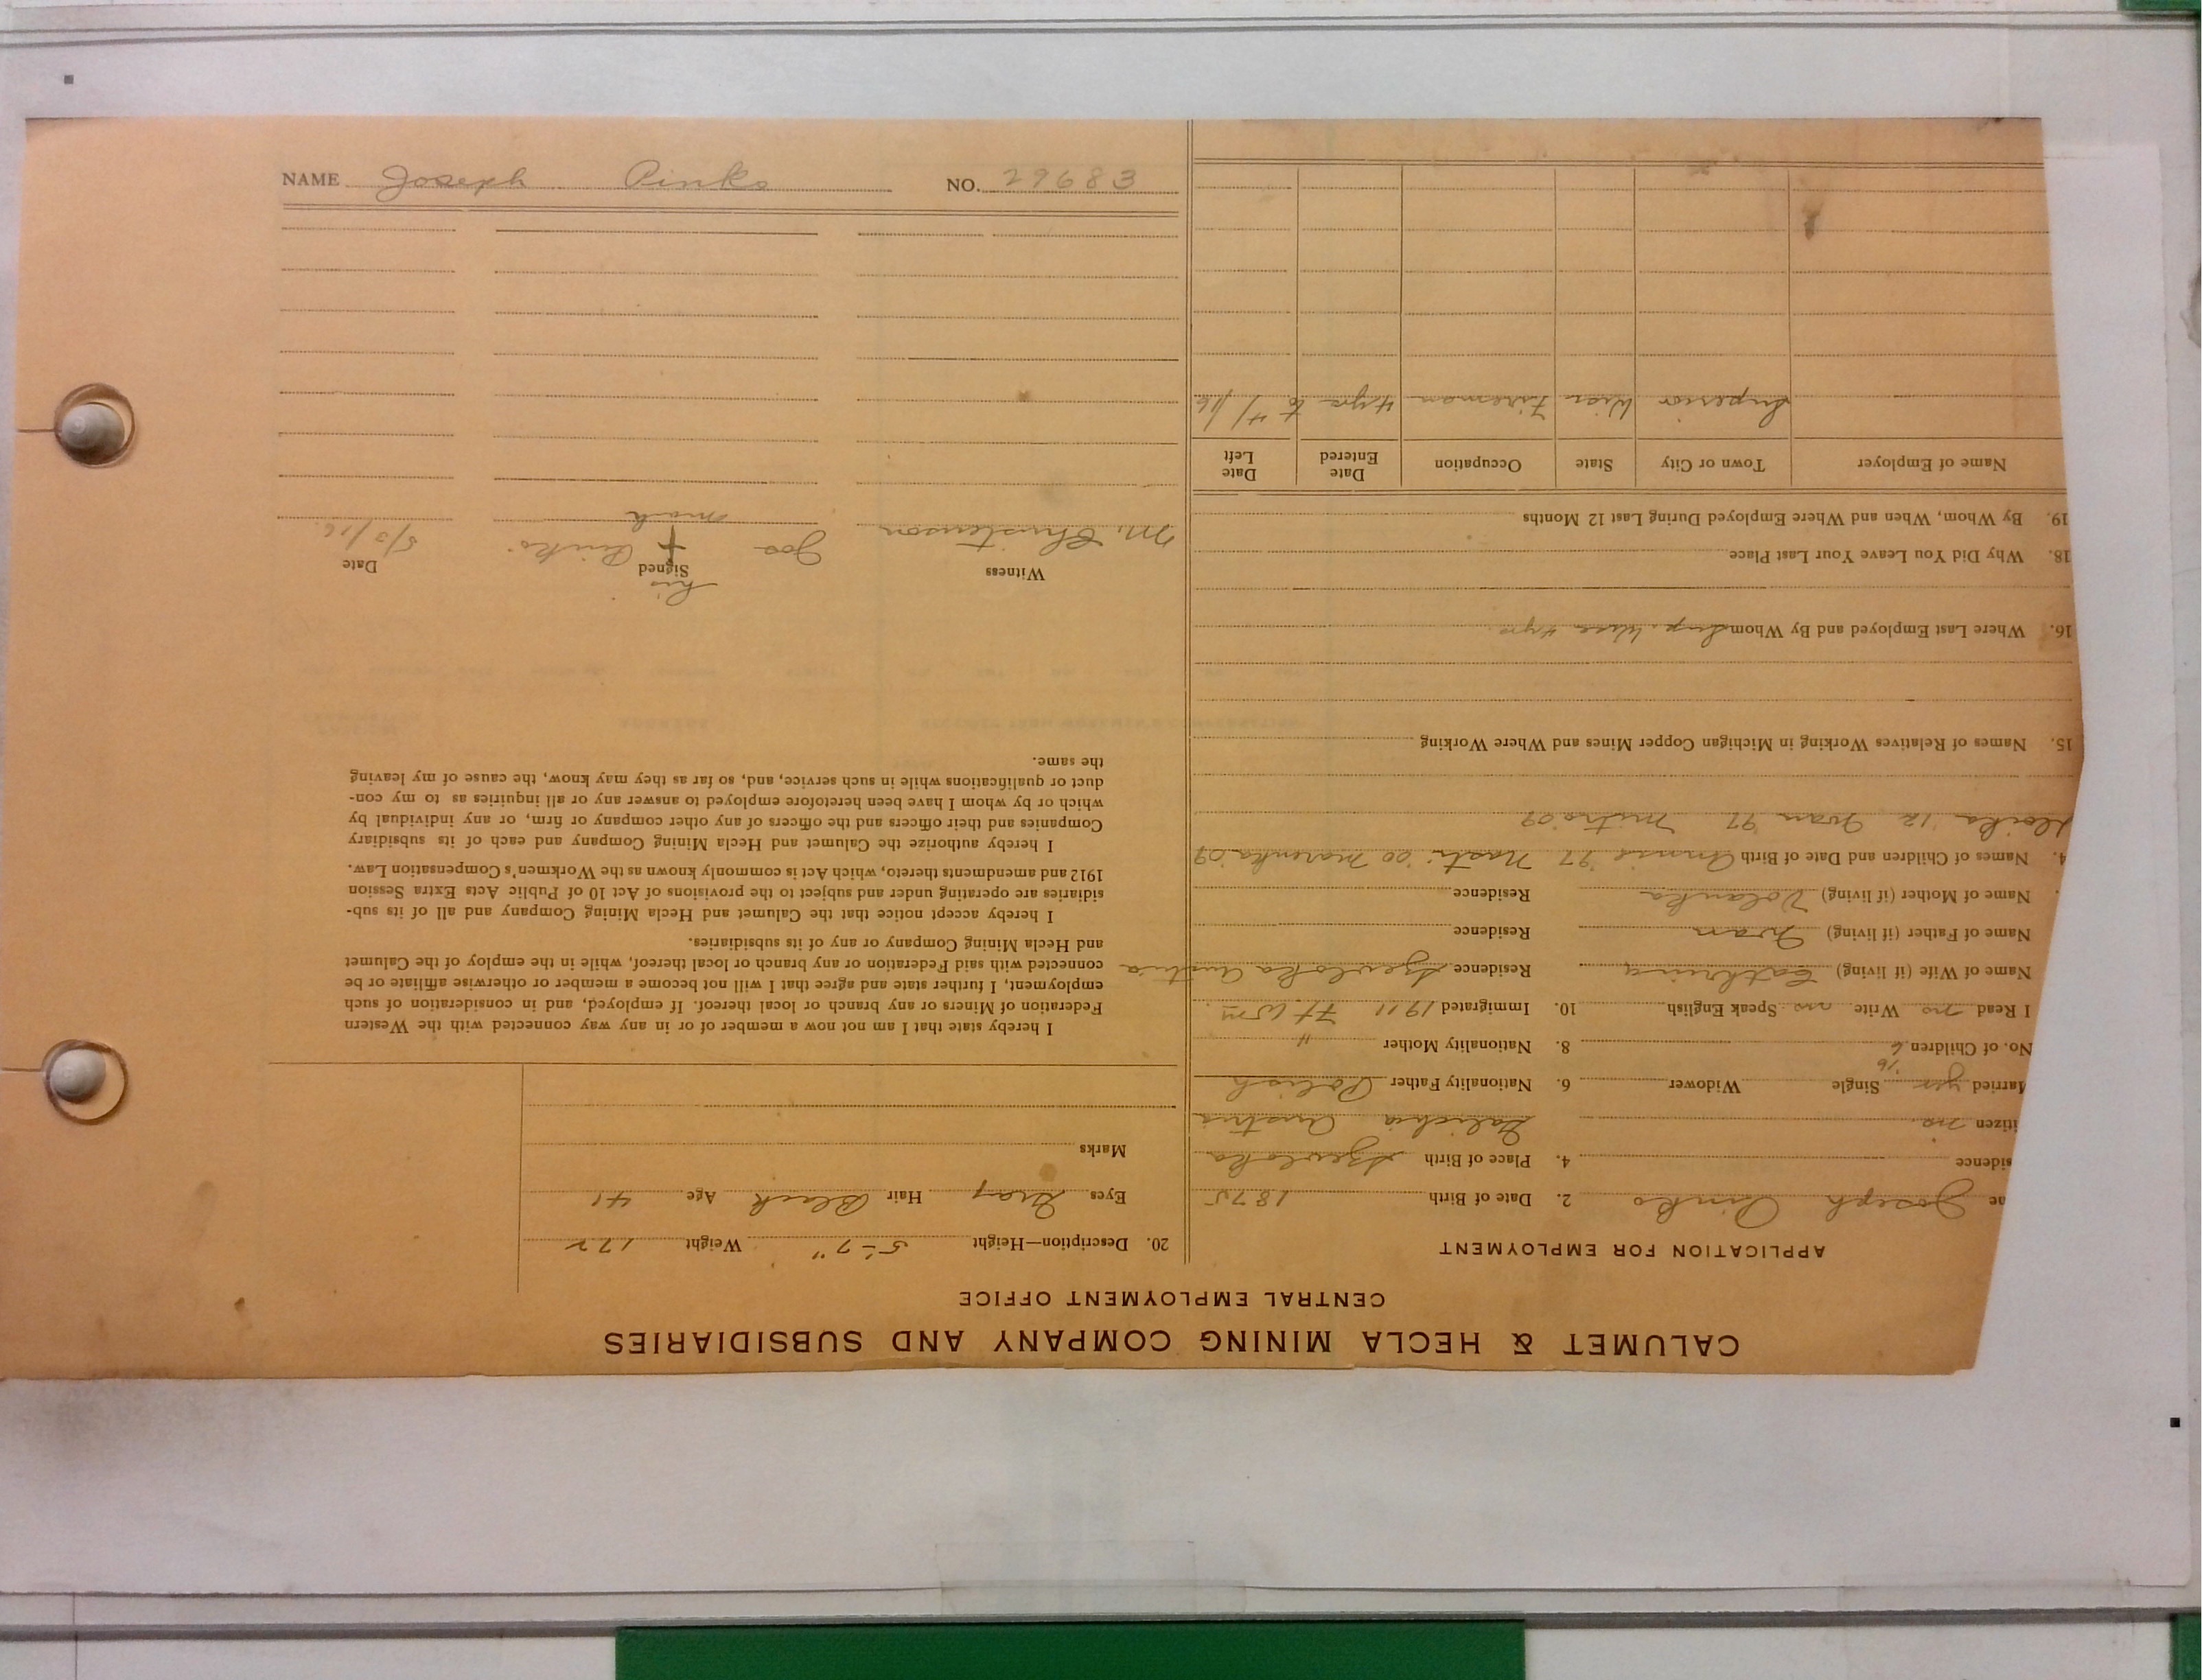 CALUMET & HECLA MINING COMPANY AND SUBSIDIARIES
CENTRAL EMPLOYMENT OFFICE
APPLICATION FOR EMPLOYMENT
Joseph Pinko 2. Date of Birth 1875
sidence 4. Place of Birth
itizen no. Austria
Married yes Single Widower 6. Nationality Father Polish
No. of Children 6 8. Nationality Mother "
I Read no Write no Speak English 10. Immigrated 1911 Ft Wm
Name of Wife (if living) Cathrina Residence Austria
Name of Father (if living) Ivan Residence
Name of Mother (if living) Residence
4. Names of Children and Date of Birth Annie '97 Nasti '00 Marenka '09
'12 Ivan '97 Mitro '09
15. Names of Relatives Working in Michigan Copper Mines and Where Working
16. Where Last Employed and By Whom Sup. Wisc 4 yrs.
18. Why Did You Leave Your Last Place
19. By Whom, When and Where Employed During Last 12 Months
Name of Employer Town or City State Occupation Date Entered Date Left
Superior Wisc Fireman 4 yrs to 4/16
20. Description—Height 5'-7" Weight 172
Eyes Gray Hair Black Age 41
Marks
I hereby state that I am not now a member of or in any way connected with the Western
Federation of Miners or any branch or local thereof. If employed, and in consideration of such
employment, I further state and agree that I will not become a member or otherwise affiliate or be
connected with said Federation or any branch or local thereof, while in the employ of the Calumet
and Hecla Mining Company or any of its subsidiaries.
I hereby accept notice that the Calumet and Hecla Mining Company and all of its sub-
sidiaries are operating under and subject to the provisions of Act 10 of Public Acts Extra Session
1912 and amendments thereto, which Act is commonly known as the Workmen's Compensation Law.
I hereby authorize the Calumet and Hecla Mining Company and each of its subsidiary
Companies and their officers and the officers of any other company or firm, or any individual by
which or by whom I have been heretofore employed to answer any or all inquiries as to my con-
duct or qualifications while in such service, and, so far as they may know, the cause of my leaving
the same.
Witness Signed Date
his
M. Christenson Jos + Pinko. 5/3/16.
mark
NAME Joseph Pinko NO. 29683